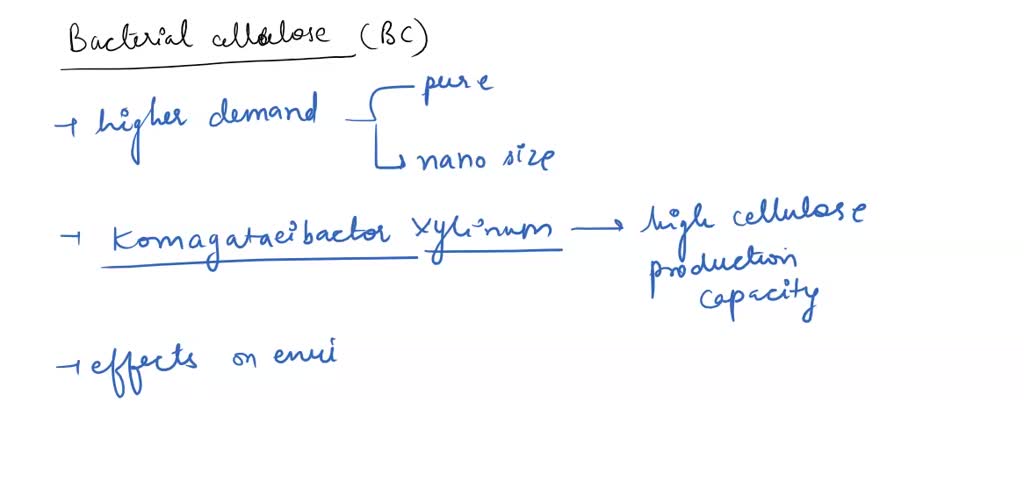 Bacterial cellulose (BC)
→ higher demand
pure
nano size
→ Komagataeibactor xylinum → high cellulose
production
capacity
→ effects on envi